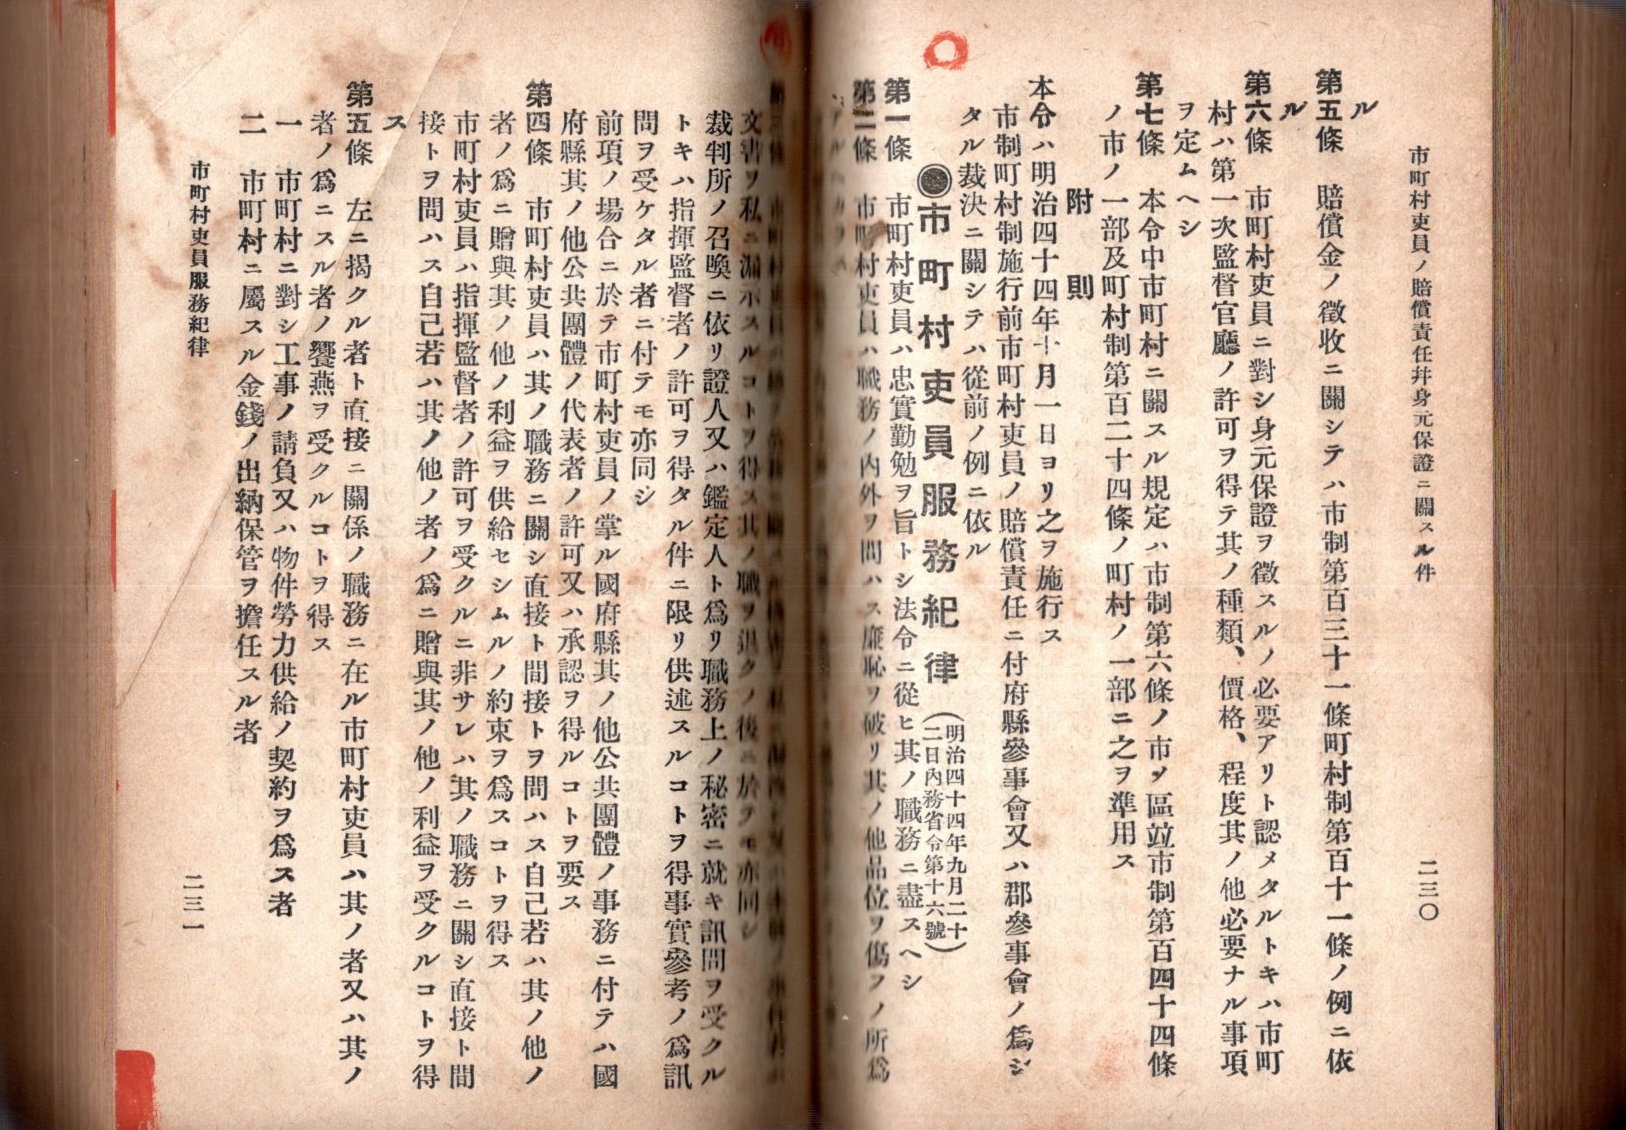 市町村吏員ノ賠償責任幷身元保證ニ關スル件
二三〇
ル
第五條　賠償金ノ徵收ニ關シテハ市制第百三十一條町村制第百十一條ノ例ニ依
ル
第六條　市町村吏員ニ對シ身元保證ヲ徵スルノ必要アリト認メタルトキハ市町
村ハ第一次監督官廳ノ許可ヲ得テ其ノ種類、價格、程度其ノ他必要ナル事項
ヲ定ムヘシ
第七條　本令中市町村ニ關スル規定ハ市制第六條ノ市ノ區竝市制第百四十四條
ノ市ノ一部及町村制第百二十四條ノ町村ノ一部ニ之ヲ準用ス
附則
本令ハ明治四十四年十月一日ヨリ之ヲ施行ス
市制町村制施行前市町村吏員ノ賠償責任ニ付府縣參事會又ハ郡參事會ノ爲シ
タル裁決ニ關シテハ從前ノ例ニ依ル
◉市町村吏員服務紀律（明治四十四年九月二十
二日內務省令第十六號）
第一條　市町村吏員ハ忠實勤勉ヲ旨トシ法令ニ從ヒ其ノ職務ニ盡スヘシ
第二條　市町村吏員ハ職務ノ內外ヲ問ハス廉恥ヲ破リ其ノ他品位ヲ傷フノ所爲
文書ヲ私ニ漏示スルコトヲ得ス其ノ職ヲ退クノ後ニ於テモ亦同シ
裁判所ノ召喚ニ依リ證人又ハ鑑定人ト爲リ職務上ノ秘密ニ就キ訊問ヲ受クル
トキハ指揮監督者ノ許可ヲ得タル件ニ限リ供述スルコトヲ得事實參考ノ爲訊
問ヲ受ケタル者ニ付テモ亦同シ
前項ノ場合ニ於テ市町村吏員ノ掌ル國府縣其ノ他公共團體ノ事務ニ付テハ國
府縣其ノ他公共團體ノ代表者ノ許可又ハ承認ヲ得ルコトヲ要ス
第四條　市町村吏員ハ其ノ職務ニ關シ直接ト間接トヲ問ハス自己若ハ其ノ他ノ
者ノ爲ニ贈與其ノ他ノ利益ヲ供給セシムルノ約束ヲ爲スコトヲ得ス
市町村吏員ハ指揮監督者ノ許可ヲ受クルニ非サレハ其ノ職務ニ關シ直接ト間
接トヲ問ハス自己若ハ其ノ他ノ者ノ爲ニ贈與其ノ他ノ利益ヲ受クルコトヲ得
ス
第五條　左ニ揭クル者ト直接ニ關係ノ職務ニ在ル市町村吏員ハ其ノ者又ハ其ノ
者ノ爲ニスル者ノ饗燕ヲ受クルコトヲ得ス
一　市町村ニ對シ工事ノ請負又ハ物件勞力供給ノ契約ヲ爲ス者
二　市町村ニ屬スル金錢ノ出納保管ヲ擔任スル者
市町村吏員服務紀律
二三一